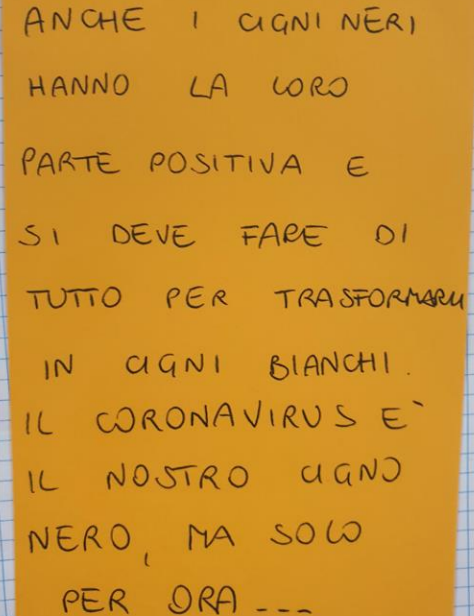 ANCHE I CIGNI NERI
HANNO LA LORO
PARTE POSITIVA E
SI DEVE FARE DI
TUTTO PER TRASFORMARLI
IN CIGNI BIANCHI.
IL CORONAVIRUS E'
IL NOSTRO CIGNO
NERO, MA SOLO
PER ORA ---